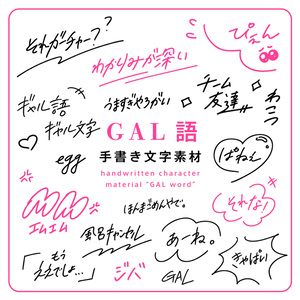 それガーチャー??
ぴえん
わかりみが深い
ギャル語
ギャル文字
うますぎやろがい
チーム
友達
わこつ
GAL語
手書き文字素材
handwritten character
material "GAL word"
egg
ぱねぇ
エムエム
ほんまごめんやで。
それなり
風呂キャンセル
あーね。
「もう
ええでしょ…」
ジバ
GAL
きゃぱい